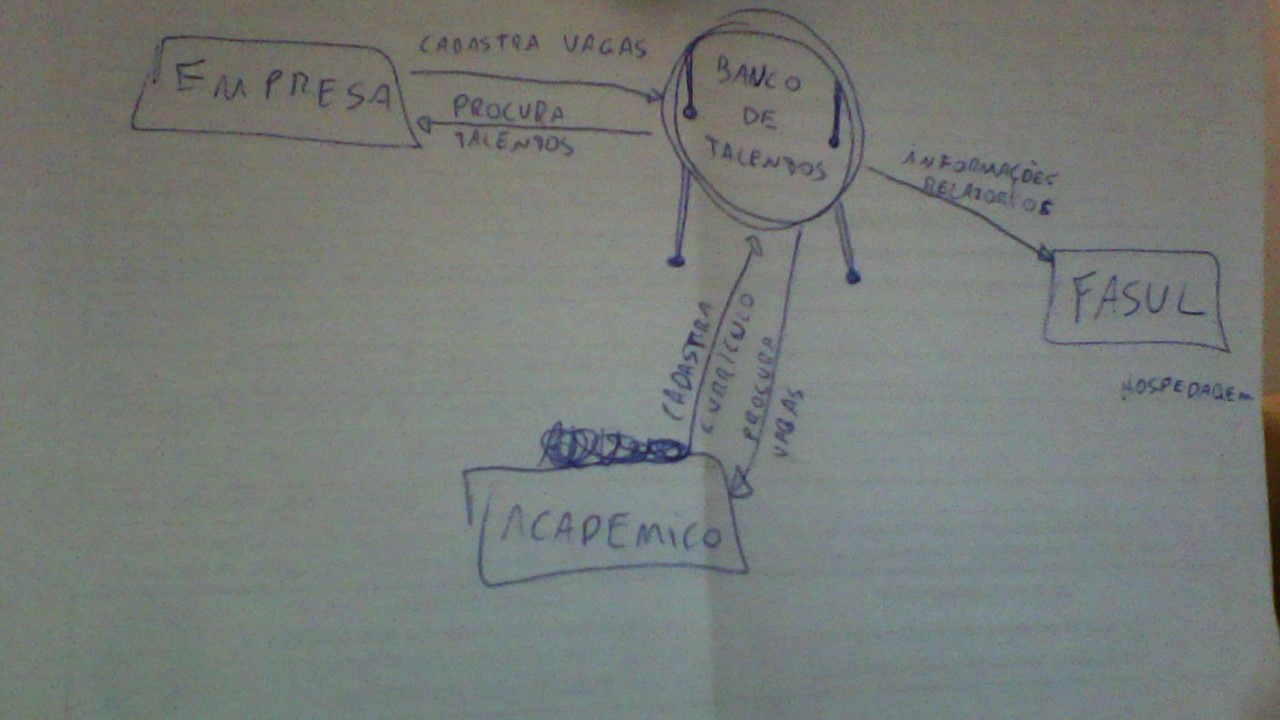 CADASTRA VAGAS
EMPRESA
PROCURA
TALENTOS
BANCO
DE
TALENTOS
INFORMAÇÕES
RELATORIOS
FASUL
HOSPEDAGEM
CADASTRA
CURRICULO
PROCURA
VAGAS
ACADEMICO